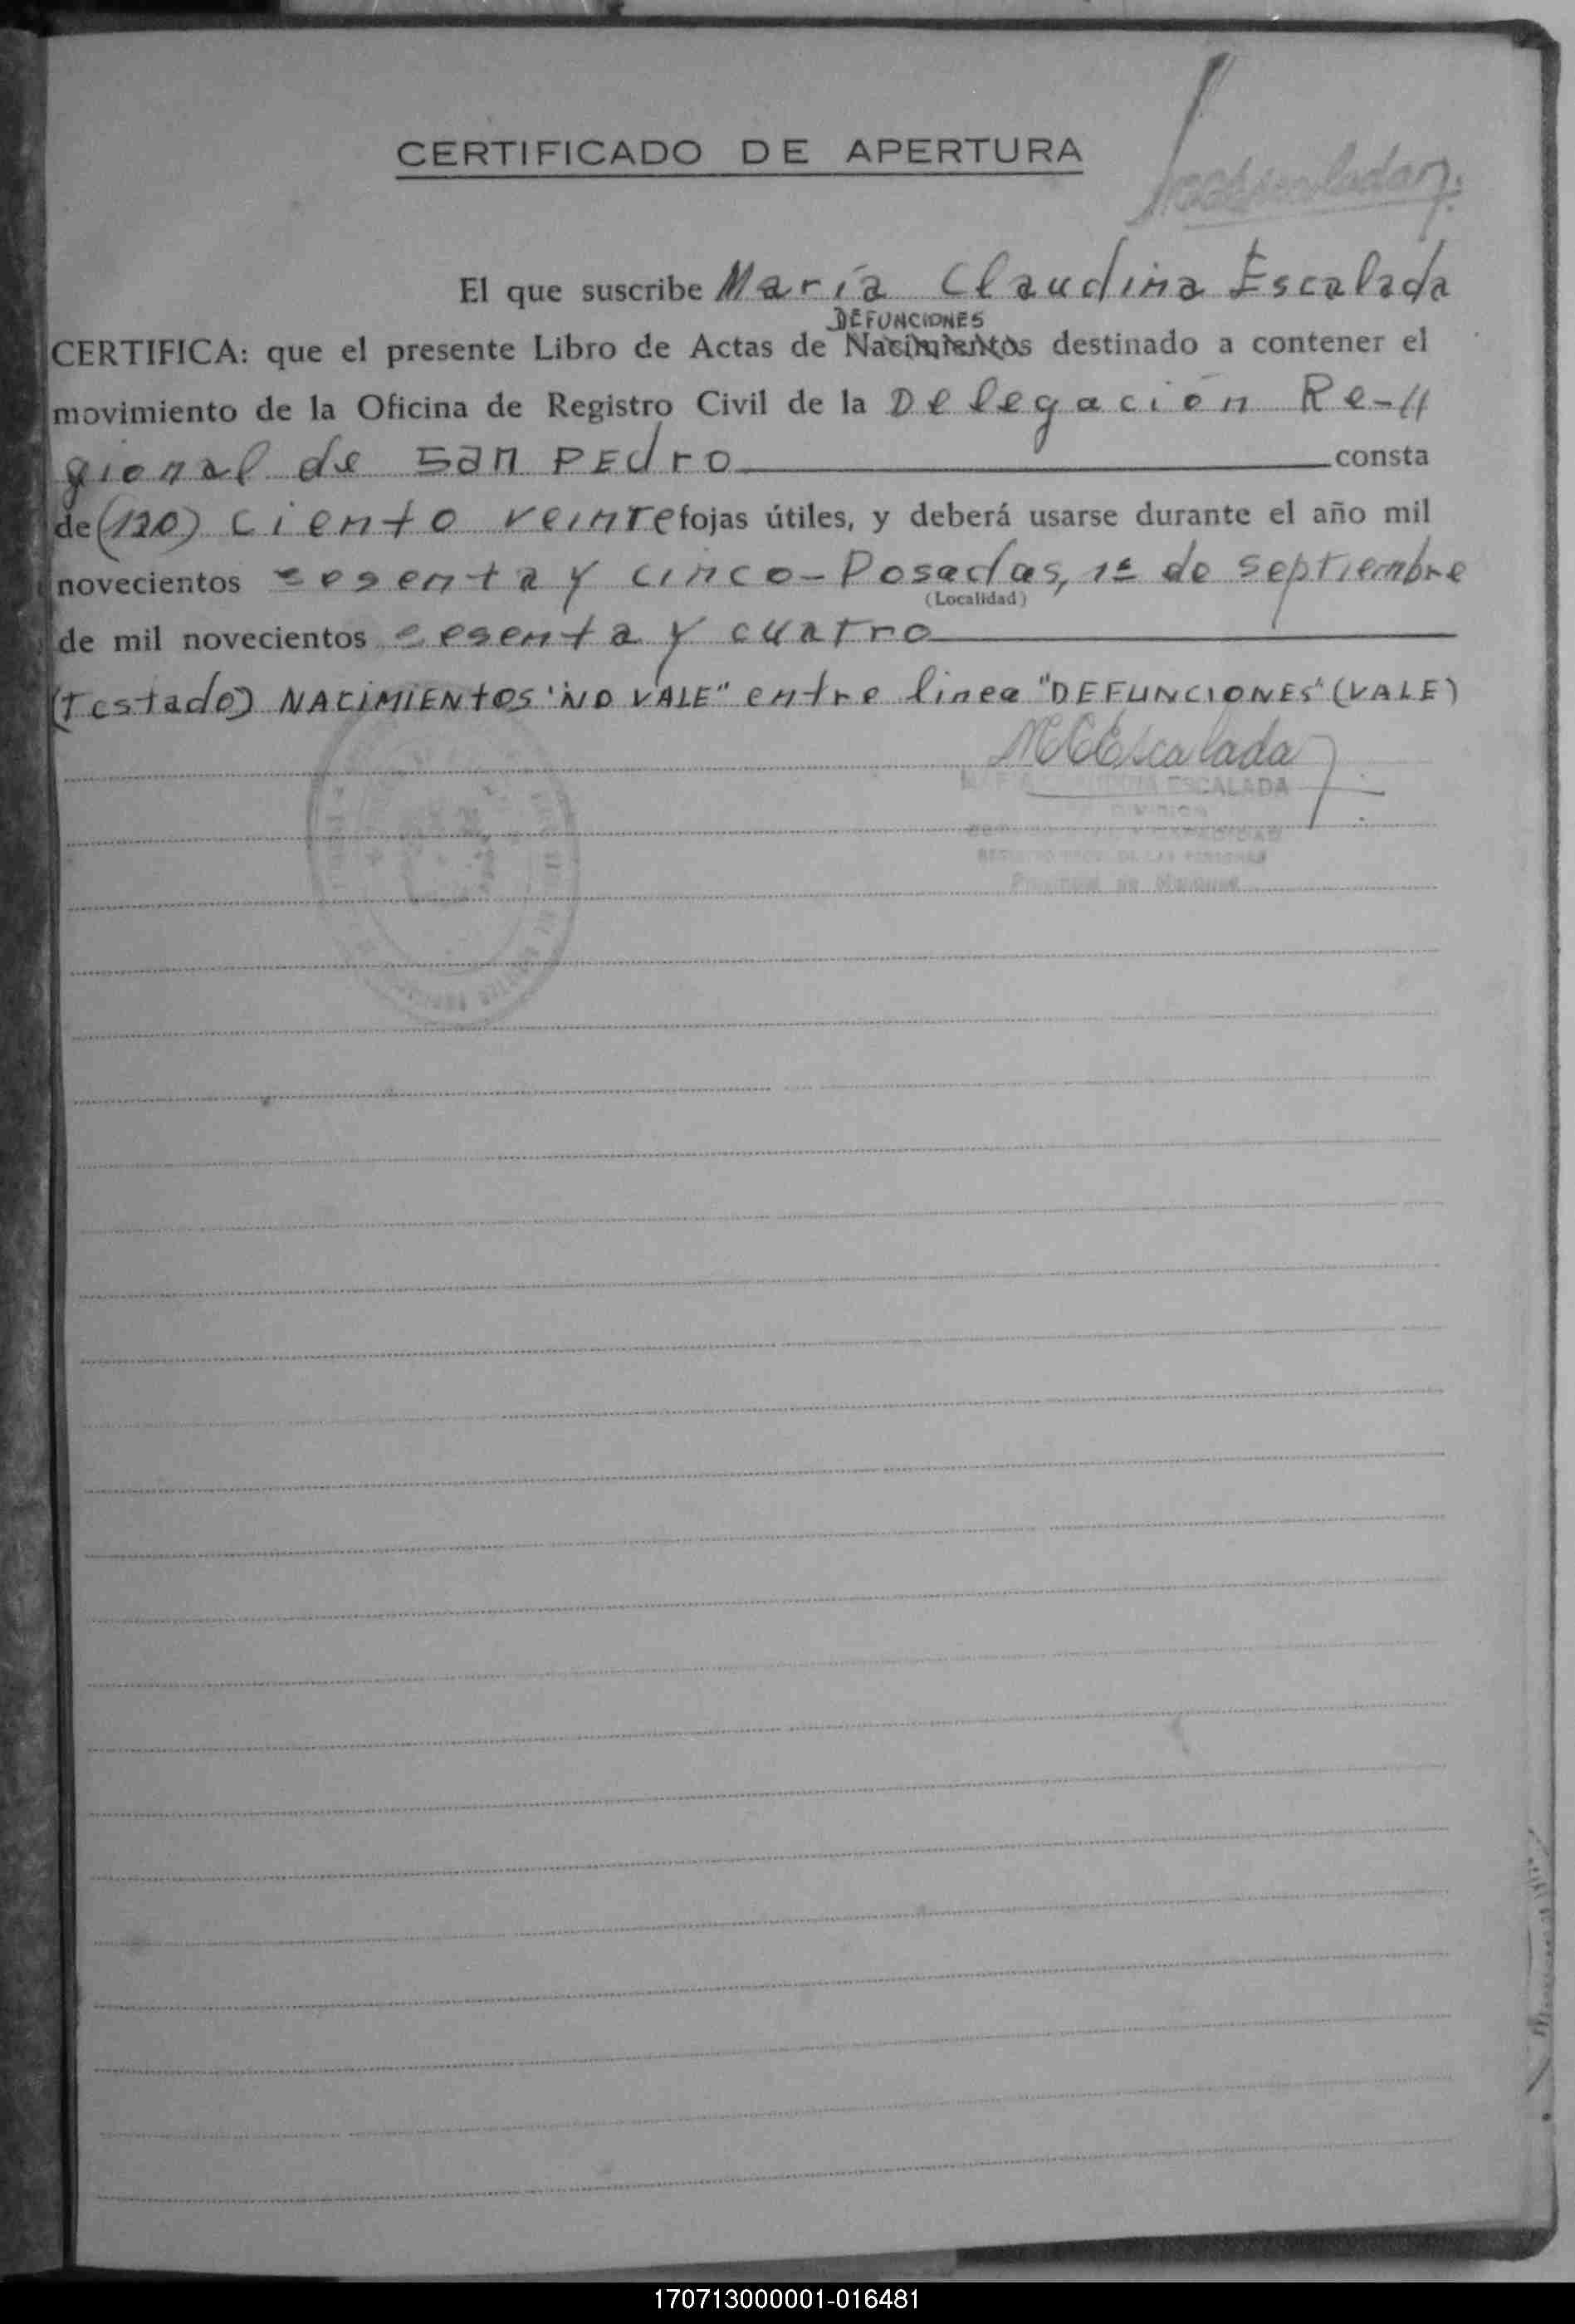 CERTIFICADO DE APERTURA
El que suscribe María Claudina Escalada
DEFUNCIONES
CERTIFICA: que el presente Libro de Actas de Nacimientos destinado a contener el
movimiento de la Oficina de Registro Civil de la Delegación Re-//
gional de San Pedro consta
de (120) ciento veinte fojas útiles, y deberá usarse durante el año mil
novecientos sesenta y cinco - Posadas, 1º de septiembre
(Localidad)
de mil novecientos sesenta y cuatro
(Testado) NACIMIENTOS "NO VALE" entre linea "DEFUNCIONES" (VALE)
MCEscalada
ESCALADA
DIVISION
170713000001-016481